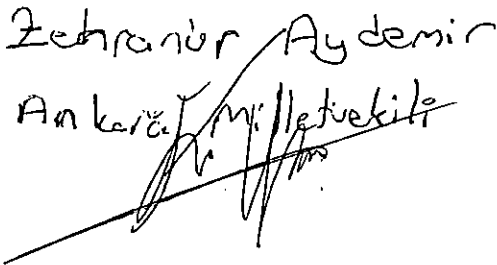 Zehranur Aydemir
Ankara Milletvekili